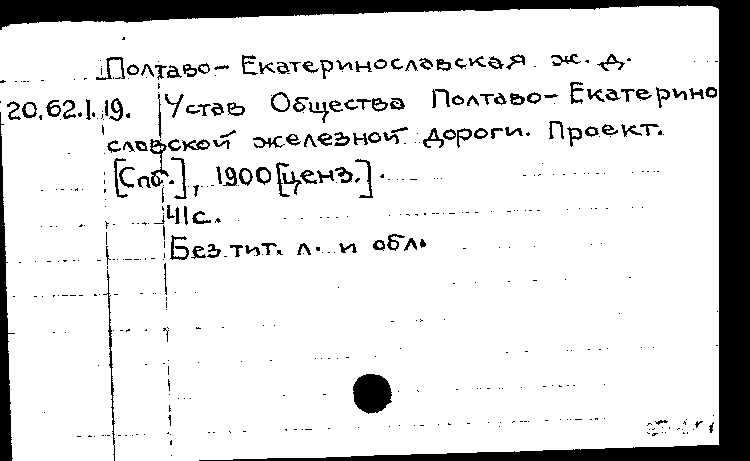 Полтаво-Екатеринославская ж. д.
20.62.1.19. Устав Общества Полтаво-Екатерино
славской железной дороги. Проект.
[Спб.], 1900 [ценз.].
41с.
Без тит. л. и обл.